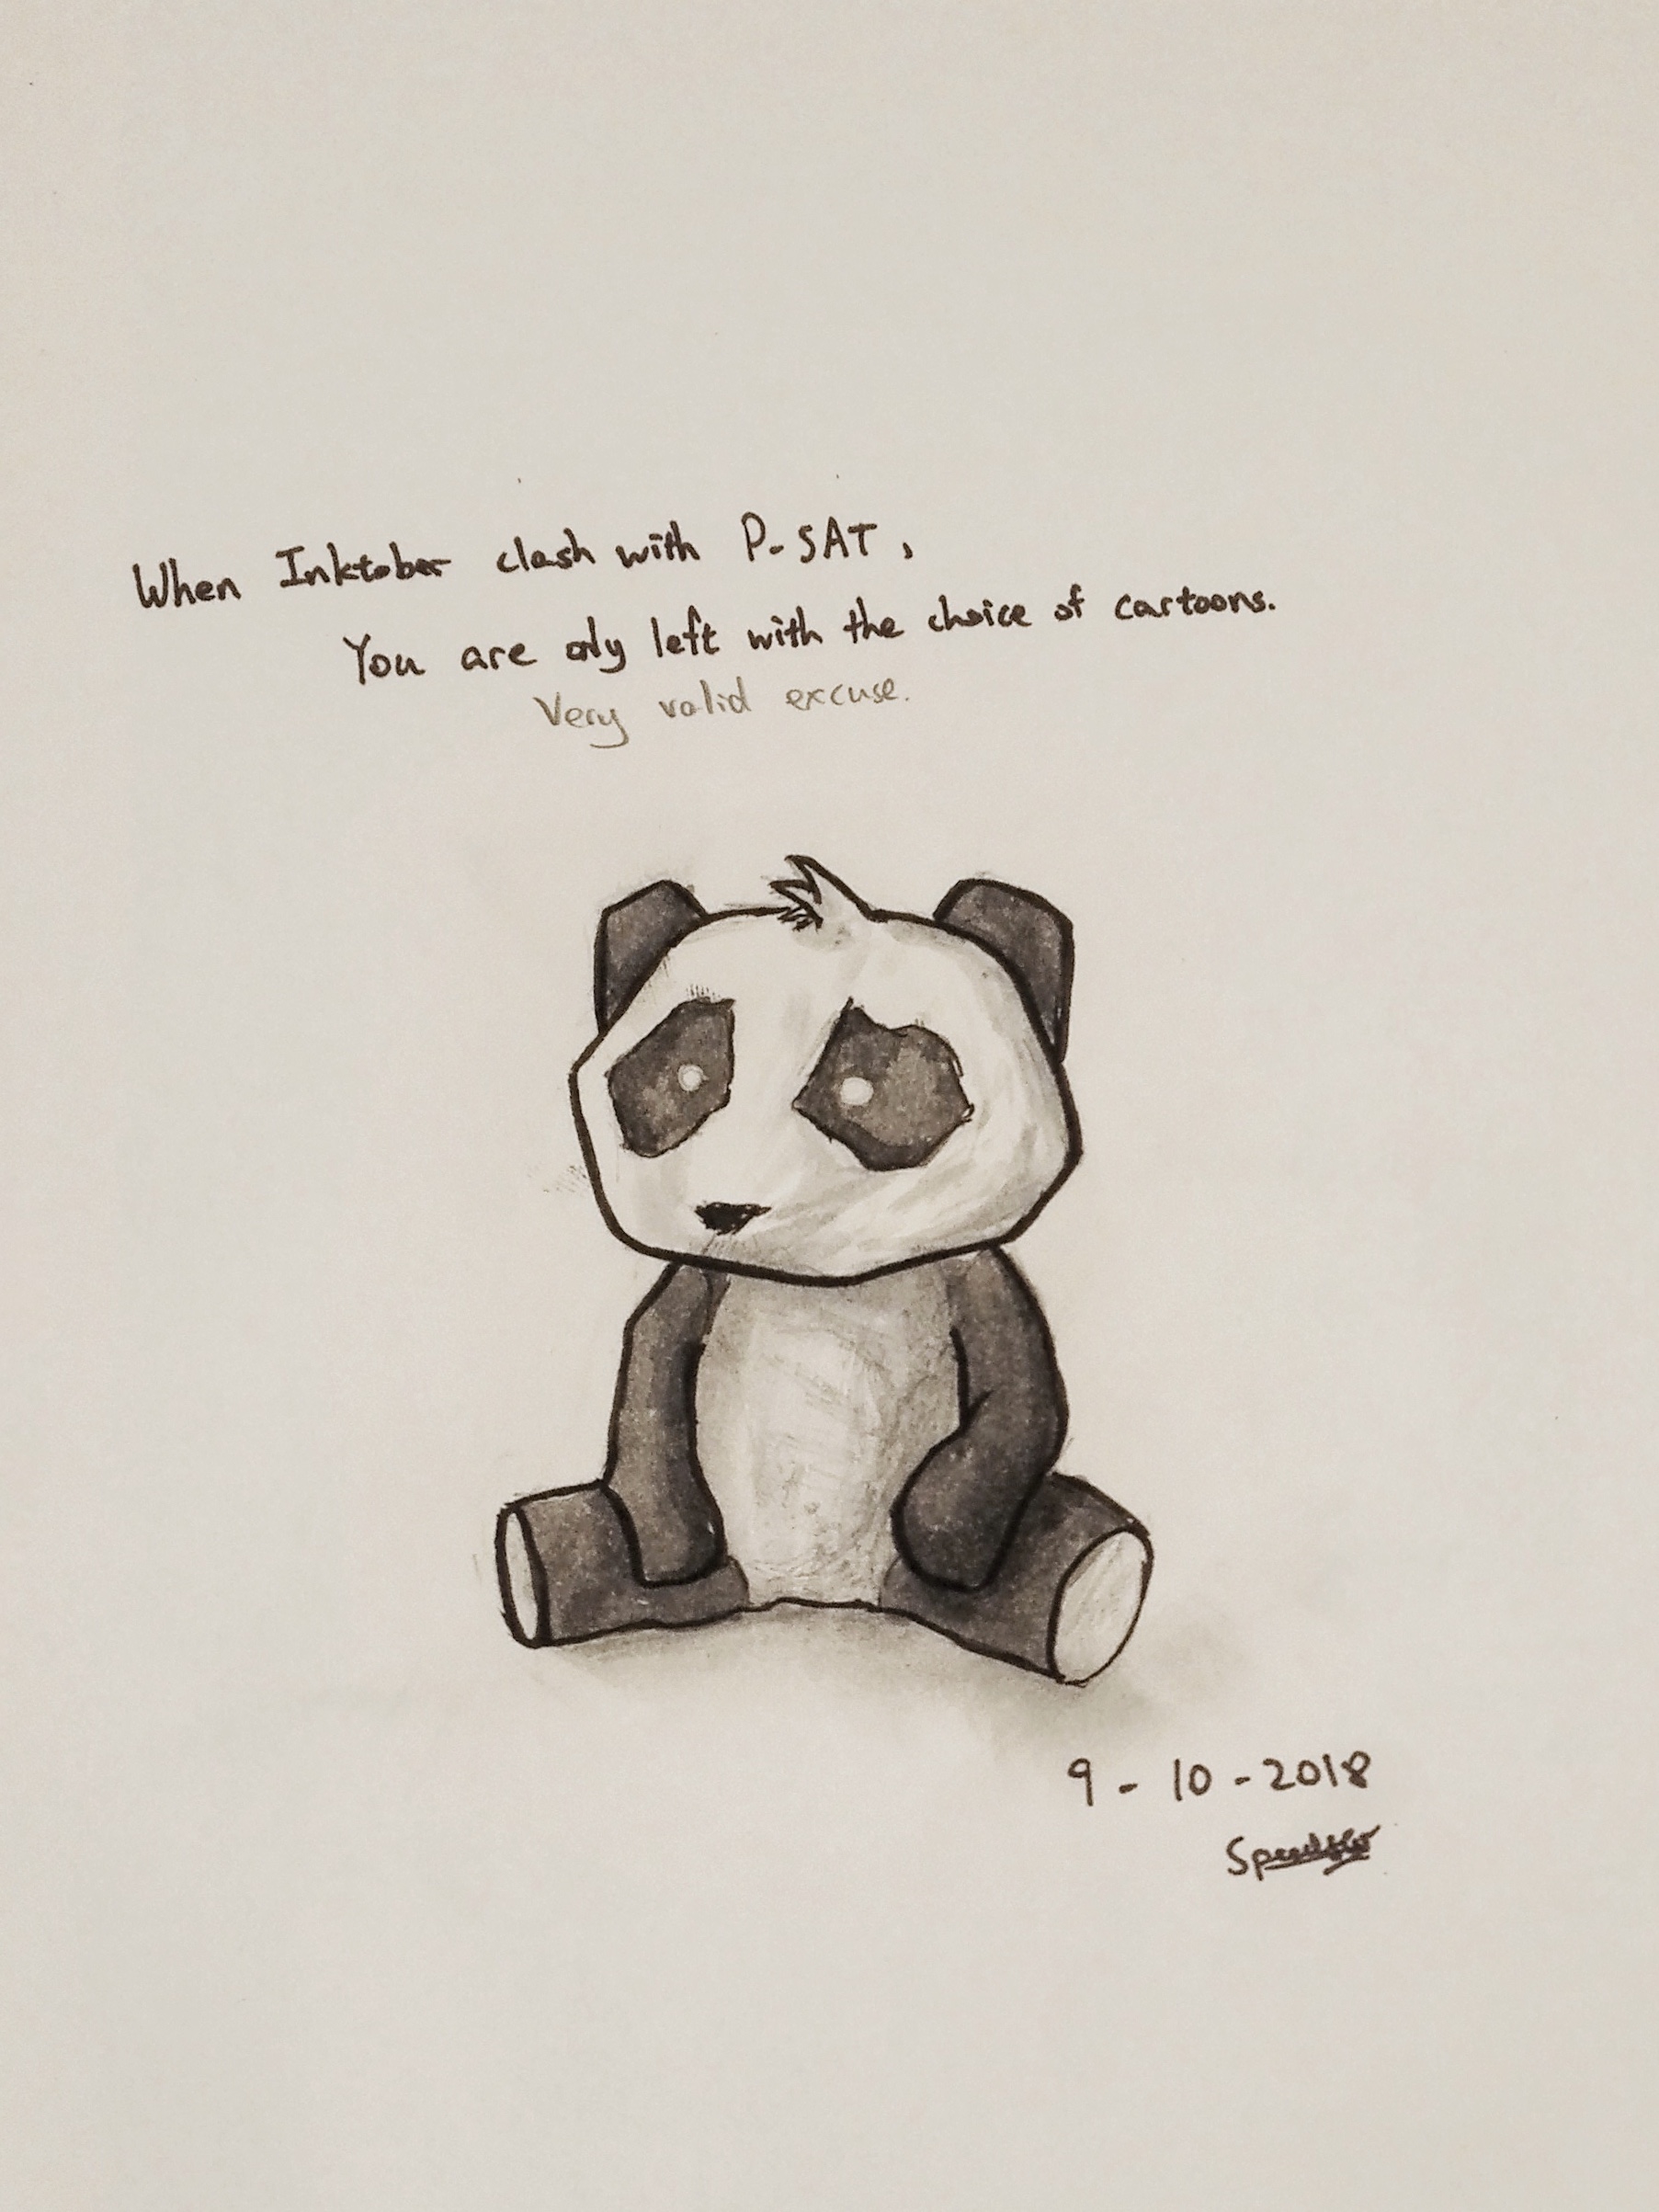 When Inktober clash with P-SAT,
You are only left with the choice of cartoons.
Very valid excuse.
9-10-2018